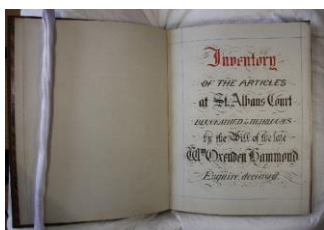 Inventory
OF THE ARTICLES
at St. Albans Court
BEQUEATHED as HEIRLOOMS
by the Will of the late
Wm Oxenden Hammond
Esquire, deceased.